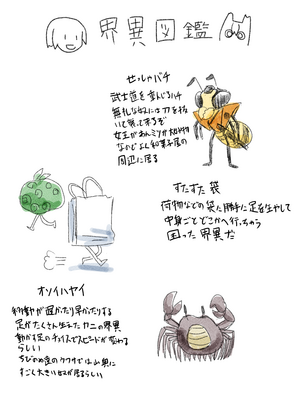 界異図鑑
せっしゃバチ
武士道を重んじるハチ
無礼な奴には刀を抜
いて襲って来るぞ
女王があんミツが大好物
なので よく和菓子屋の
周辺に居る
すたすた袋
荷物などの袋に勝手に足を生やして
中身ごとどこかへ行っちゃう
困った界異だ
オソイハヤイ
移動が遅かったり早かったりする
足がたくさん生えたカニの界異
動かす足のチョイスでスピードが変わる
らしい
すごく大きい奴が居るらしい